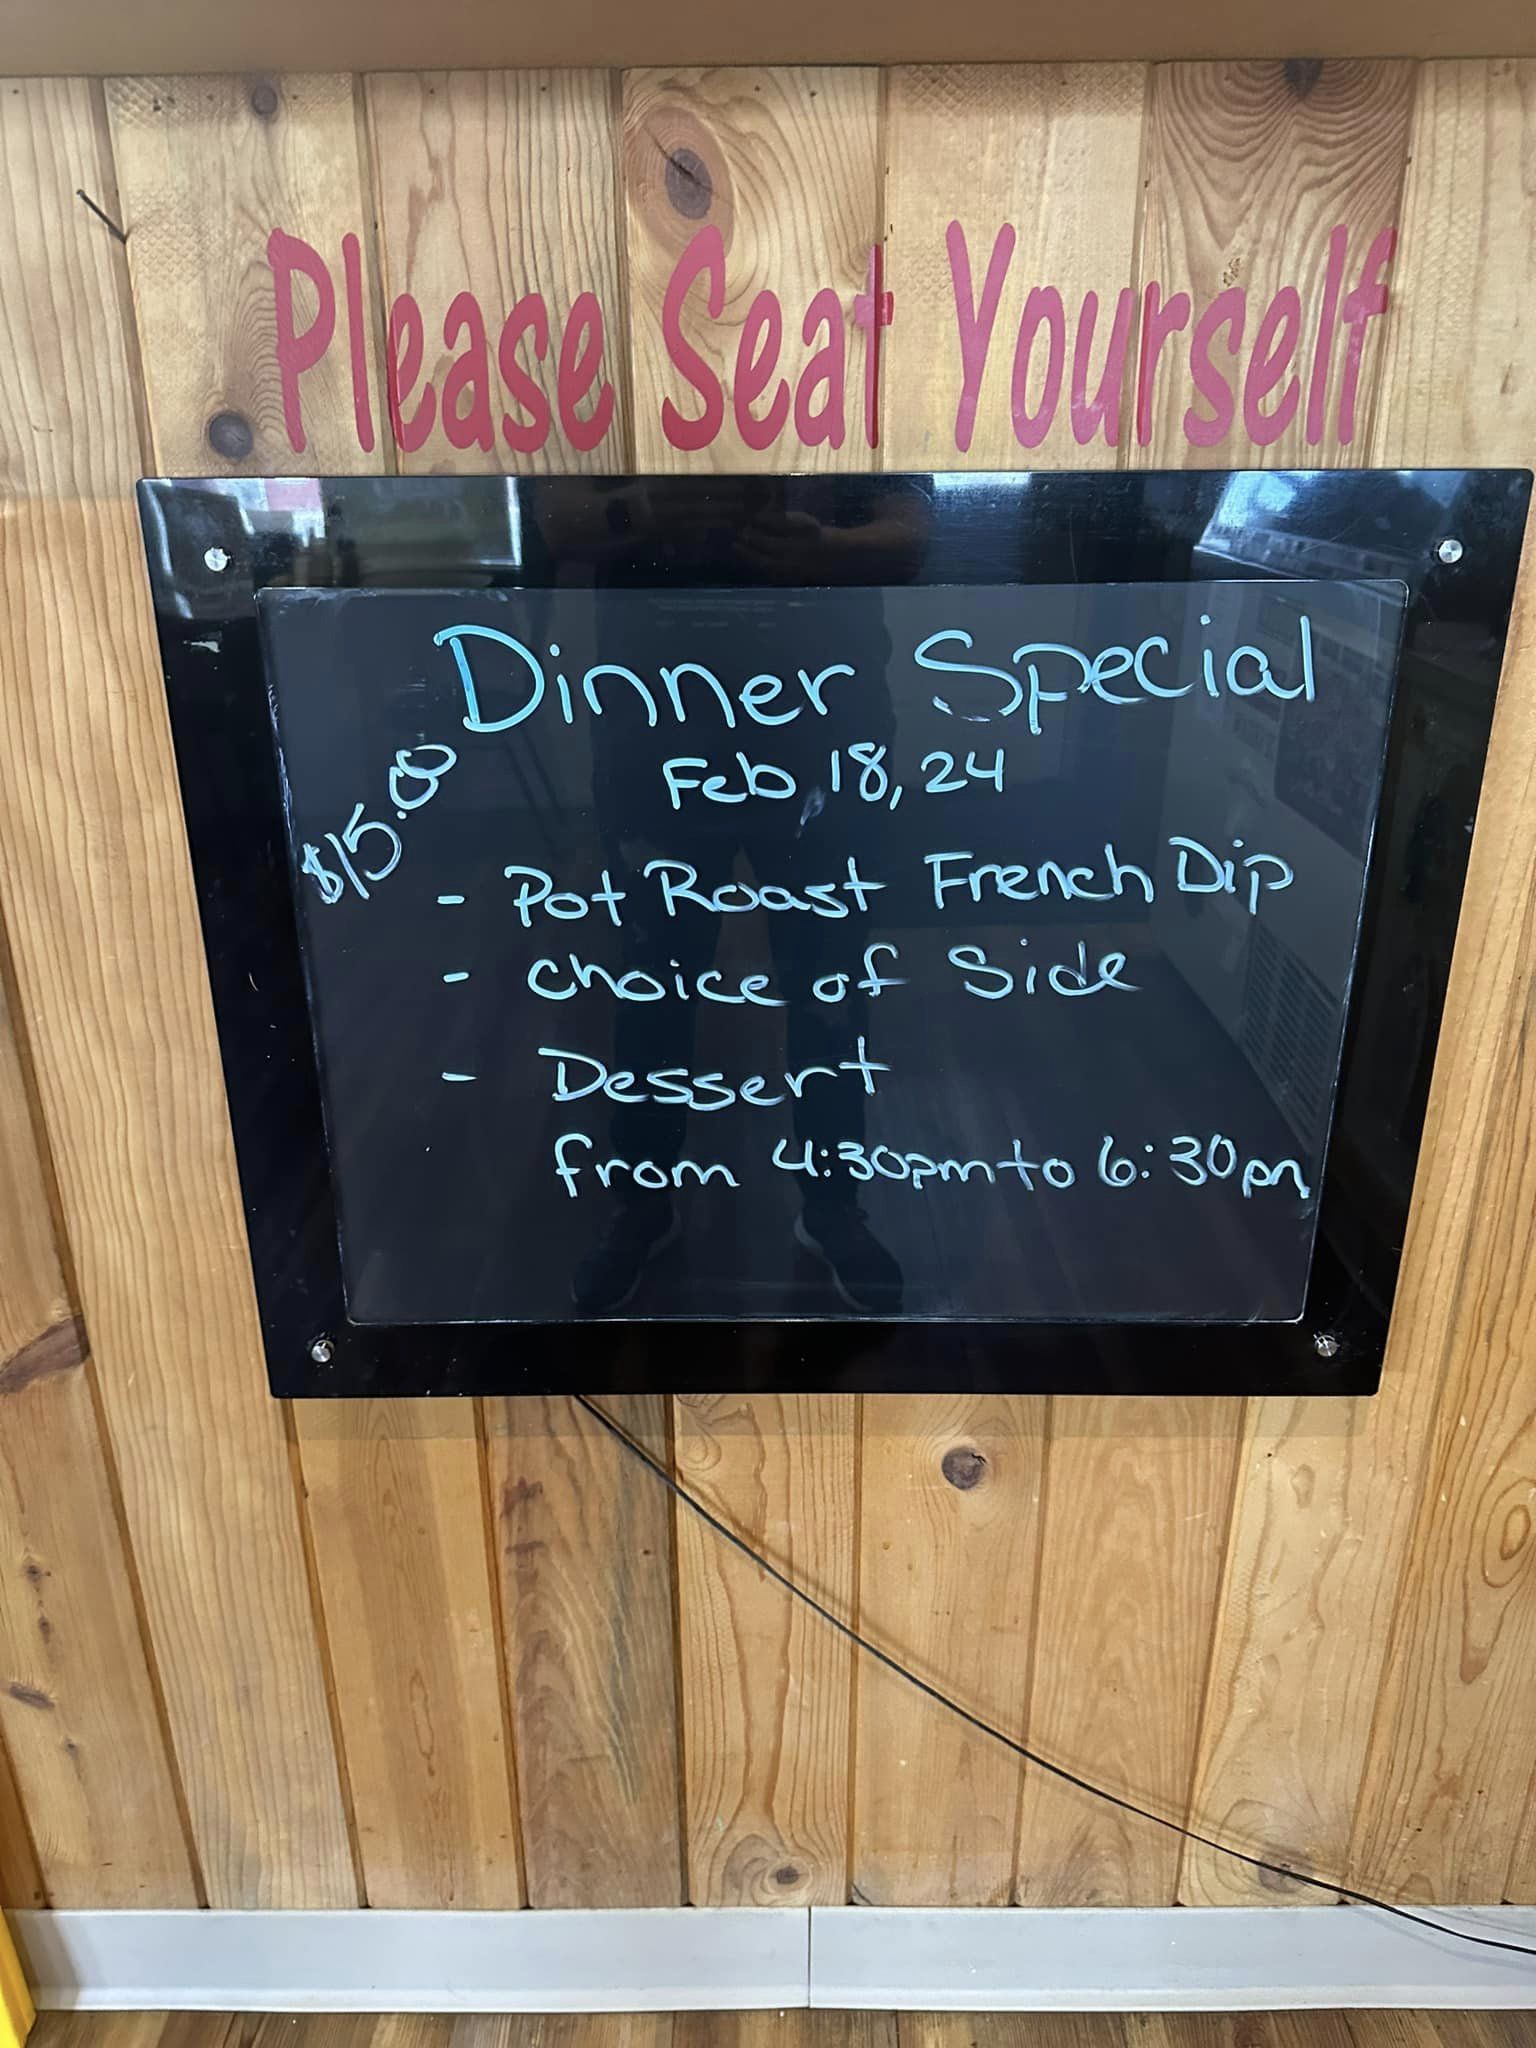 Please Seat Yourself
Dinner Special
Feb 18, 24
$15.00
- Pot Roast French Dip
- Choice of Side
- Dessert
from 4:30pm to 6:30pm